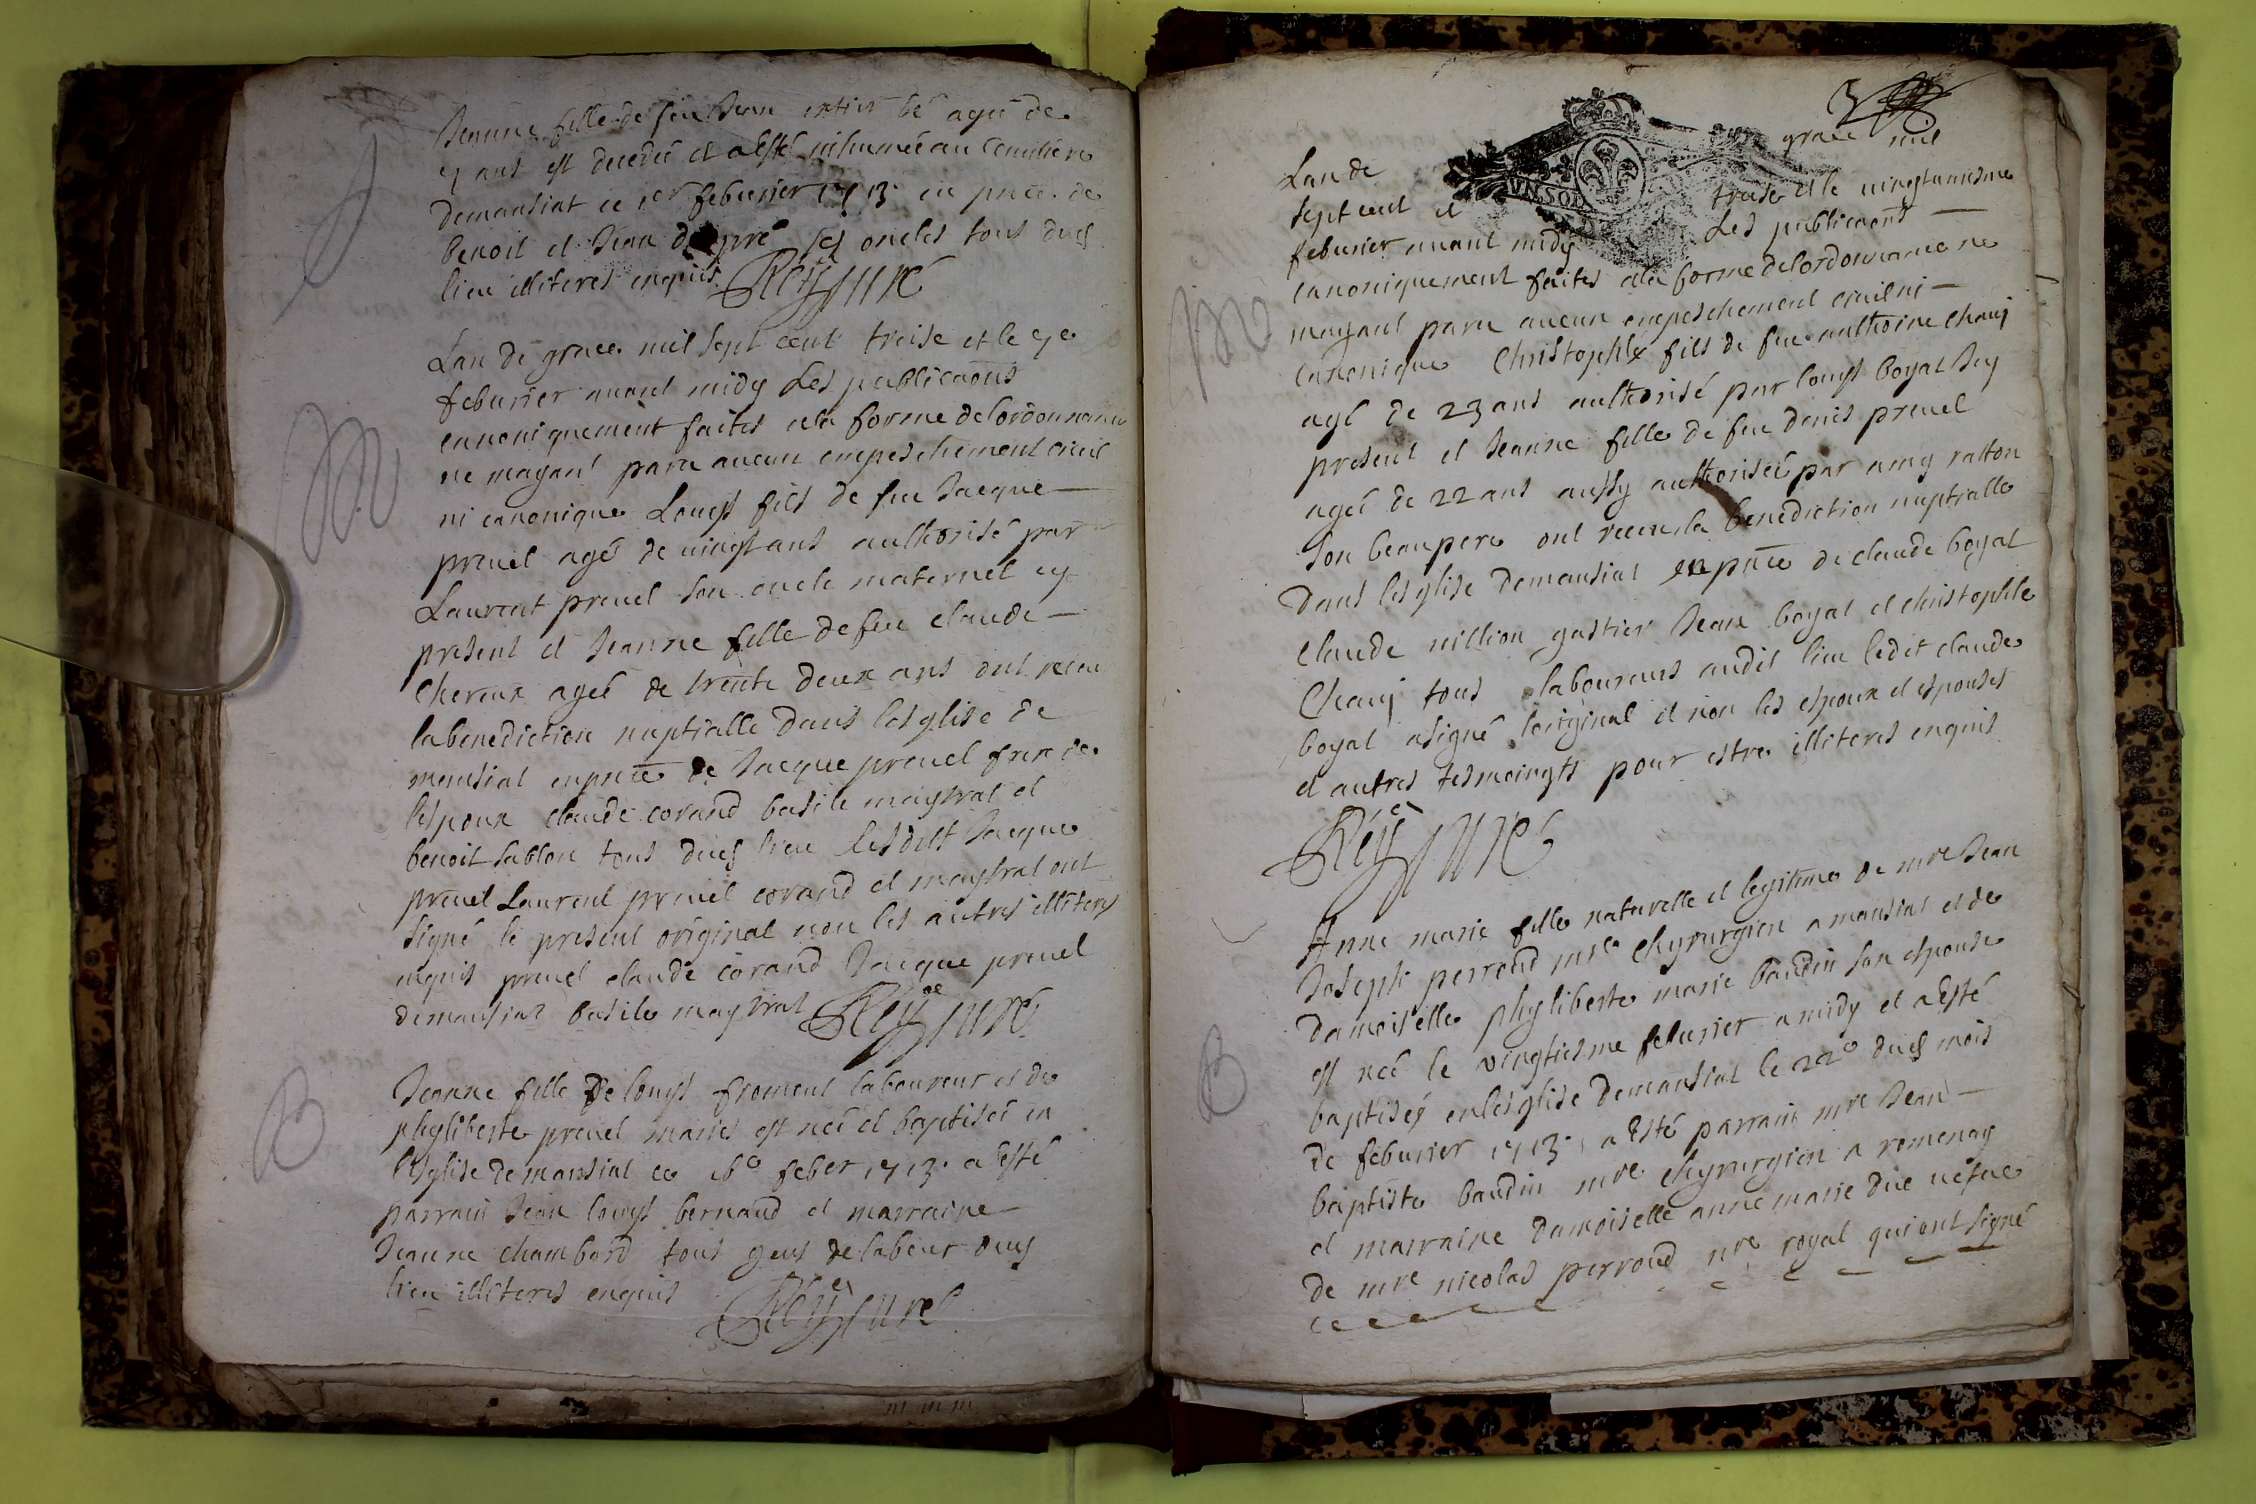 Jeanne fille de feu Jean agée de
ans est decedée et a esté inhumée au cemitiere
demansiat ce 1er feburier 1713 en pnce de
benoit et Jean dupré ses oncles tous duds
lieu illiteres enquis Rey curé
Lan de grace mil sept cent treise et le 7e
feburier avant midy Les publicaons
canoniquement faites ala forme delordonnance
ne mayant paru aucun empeschement civil
ni canonique Louys fils de feu Jacque
prevel agé de vingt ans authorisé par
Laurent prevel son oncle maternel cy
present et Jeanne fille defeu claude
Chereux ageé de trente deux ans ont receu
labenediction nuptialle dans leglise de
mansiat enpnce de Jacque prevel frere de
lespoux claude corand basile maystrat et
benoit sablon tous duds lieu lesdits Jacque
prevel Laurent prevel corand et maystrat ont
signé le present original non les autres illiteres
enquis prevel claude corand Jacque prevel
demansiat basile maystrat Rey curé
Jeanne fille De louys froment laboureur et de
phyliberte prevel mariés est neé et baptiseé en
leglise demansiat ce feber 1713 a esté
parrain Jean louys bernard et marraine
Jeanne chambard tous gens delabeur duds
lieu illiteres enquis Rey curé
3
Lan de grace mil
VN SOL
sept cent et treise et le vingtunieme
feburier avant midy Les publicaons
canoniquement faites ala forme delordonnance ne
mayant paru aucun empeschement civil ni
canonique Christophle fils de feu anthoine Chanj
agé de 23 ans authorisé par louys boyat Icy
present et Jeanne fille de feu denis prevel
ageé de 22 ans aussy authoriseé par amy ratton
son beaupere ont receu la benediction nuptialle
Dans leglise demansiat en pnce de claude boyat
Claude million gastier Jean boyat et christophle
Chanj tous laboureurs audit lieu ledit claude
boyat asigné loriginal et non les espoux et espouses
et autres tesmoingts pour estre illiteres enquis
Rey curé
Anne marie fille naturelle et legitime de mre Jean
Joseph perroud mre Chyrurgien a mansiat et de
damoiselle phyliberte marie baudin son espouse
est neé le vingtiesme feburier a midy et a Esté
baptiseé enleglise demansiat le 22e duds mois
de feburier 1713 a Esté parrain mre Jean
baptiste baudin mre Chyrurgien a romenay
et marraine damoiselle anne marie duc vefve
de mre nicolas perroud nre royal qui ont signé